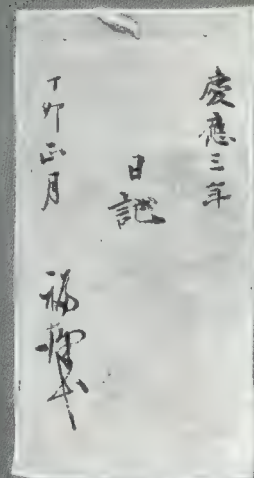 慶應三年
日記
丁卯正月
福澤